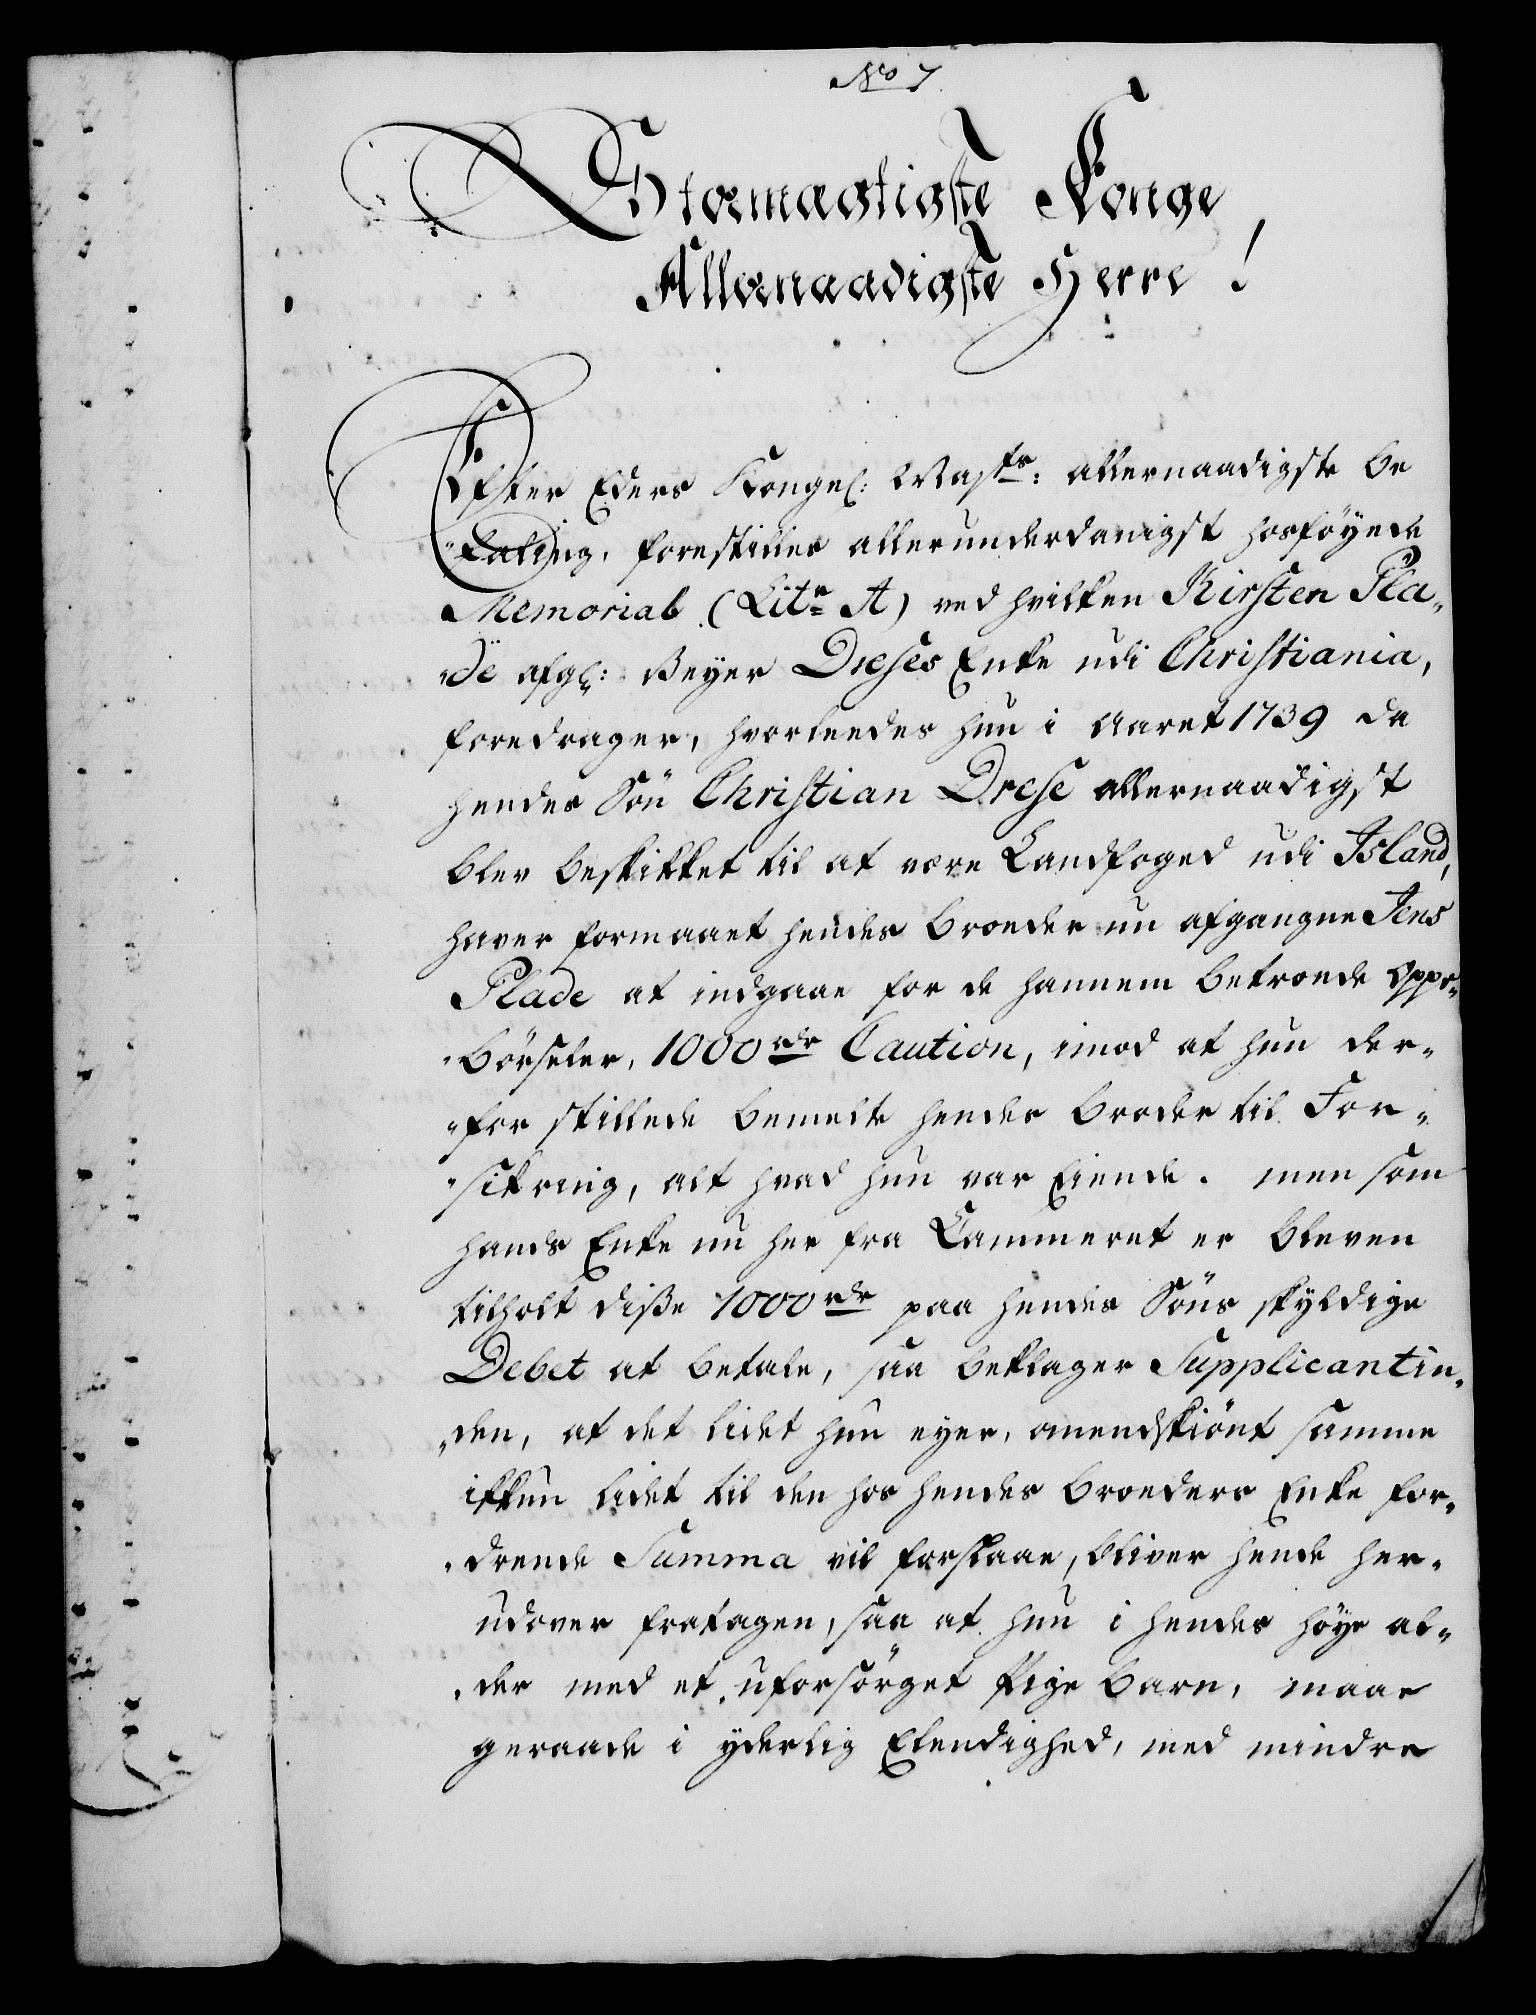 No 7
Stormægtigste Konge
Allernaadigste Herre!
Efter Eders Kongel: Majts: allernaadigste be
faling, forestilles allerunderdanigst hosföyede
Memorial (Litr A) ved hvilken Kirsten Pla„
„de afgl: Beyer Dreses Enke udi Christiania,
foredrager, hvorleedes hun i Aaret 1739 da
hendes Sön Christian Drese allernaadigst
blev beskikket til at være Landfoged udi Island,
haver formaaet hendes broeder nu afgangne Jens
Plade at indgaae for de hannem betroede Oppe„
„börseler, 1000 rdr Caution, imod at hun der„
„for stillede bemelte hendes broder til For„
„sikring, alt hvad hun var Eiende. men som
hands Enke nu her fra Cammeret er bleven
tilholt diße 1000 rdr paa hendes Söns skyldige
Debet at betale, saa beklager Supplicantin„
„den, at det lidet hun eyer, omendskiönt samme
ikkun lidet til den hos hendes broeders Enke for„
„drende Summa vil forslaae, bliver hende her„
udover fratagen, saa at hun i hendes höye al„
„der med et uforsörget Pige barn, maae
geraade i yderlig Elendighed, med mindre